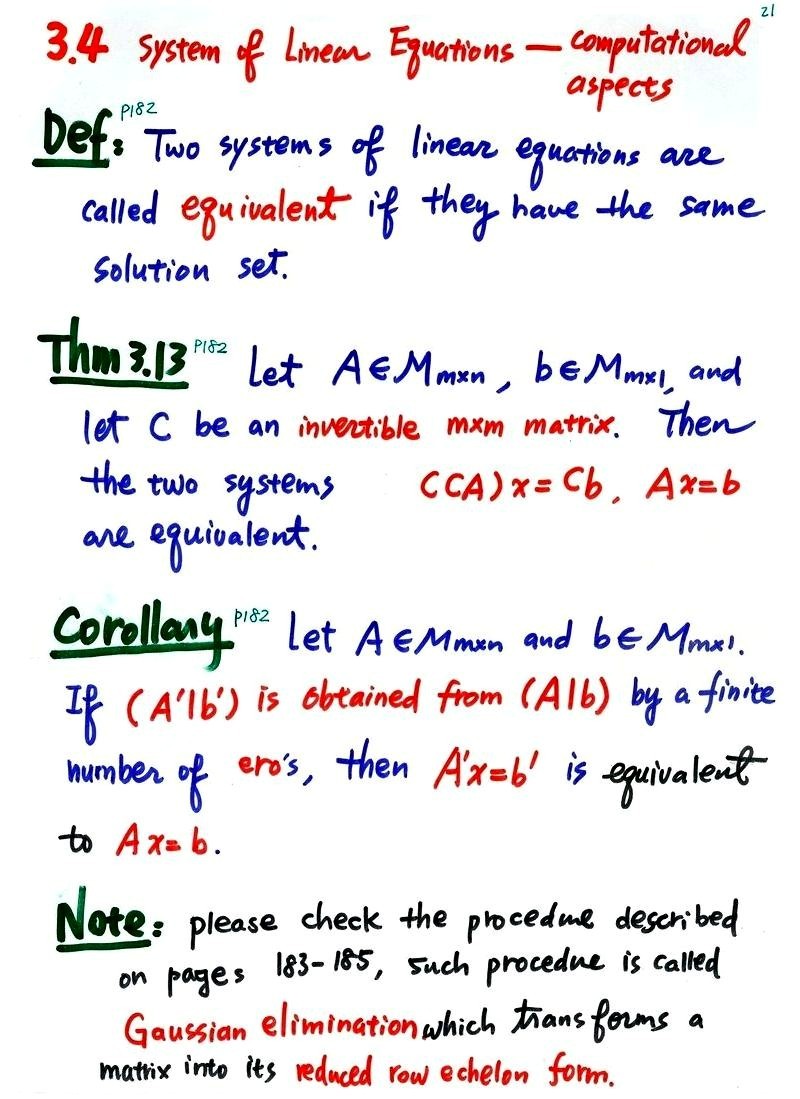 21
3.4 System of Linear Equations — computational
aspects
Def: P182 Two systems of linear equations are
called equivalent if they have the same
solution set.
Thm 3.13 P182 Let A∈Mmxn, b∈Mmx1, and
let C be an invertible mxm matrix. Then
the two systems (CA)x=Cb, Ax=b
are equivalent.
Corollary P182 Let A∈Mmxn and b∈Mmx1.
If (A'|b') is obtained from (A|b) by a finite
number of ero's, then A'x=b' is equivalent
to Ax=b.
Note: please check the procedure described
on pages 183-185, such procedure is called
Gaussian elimination which transforms a
matrix into its reduced row echelon form.